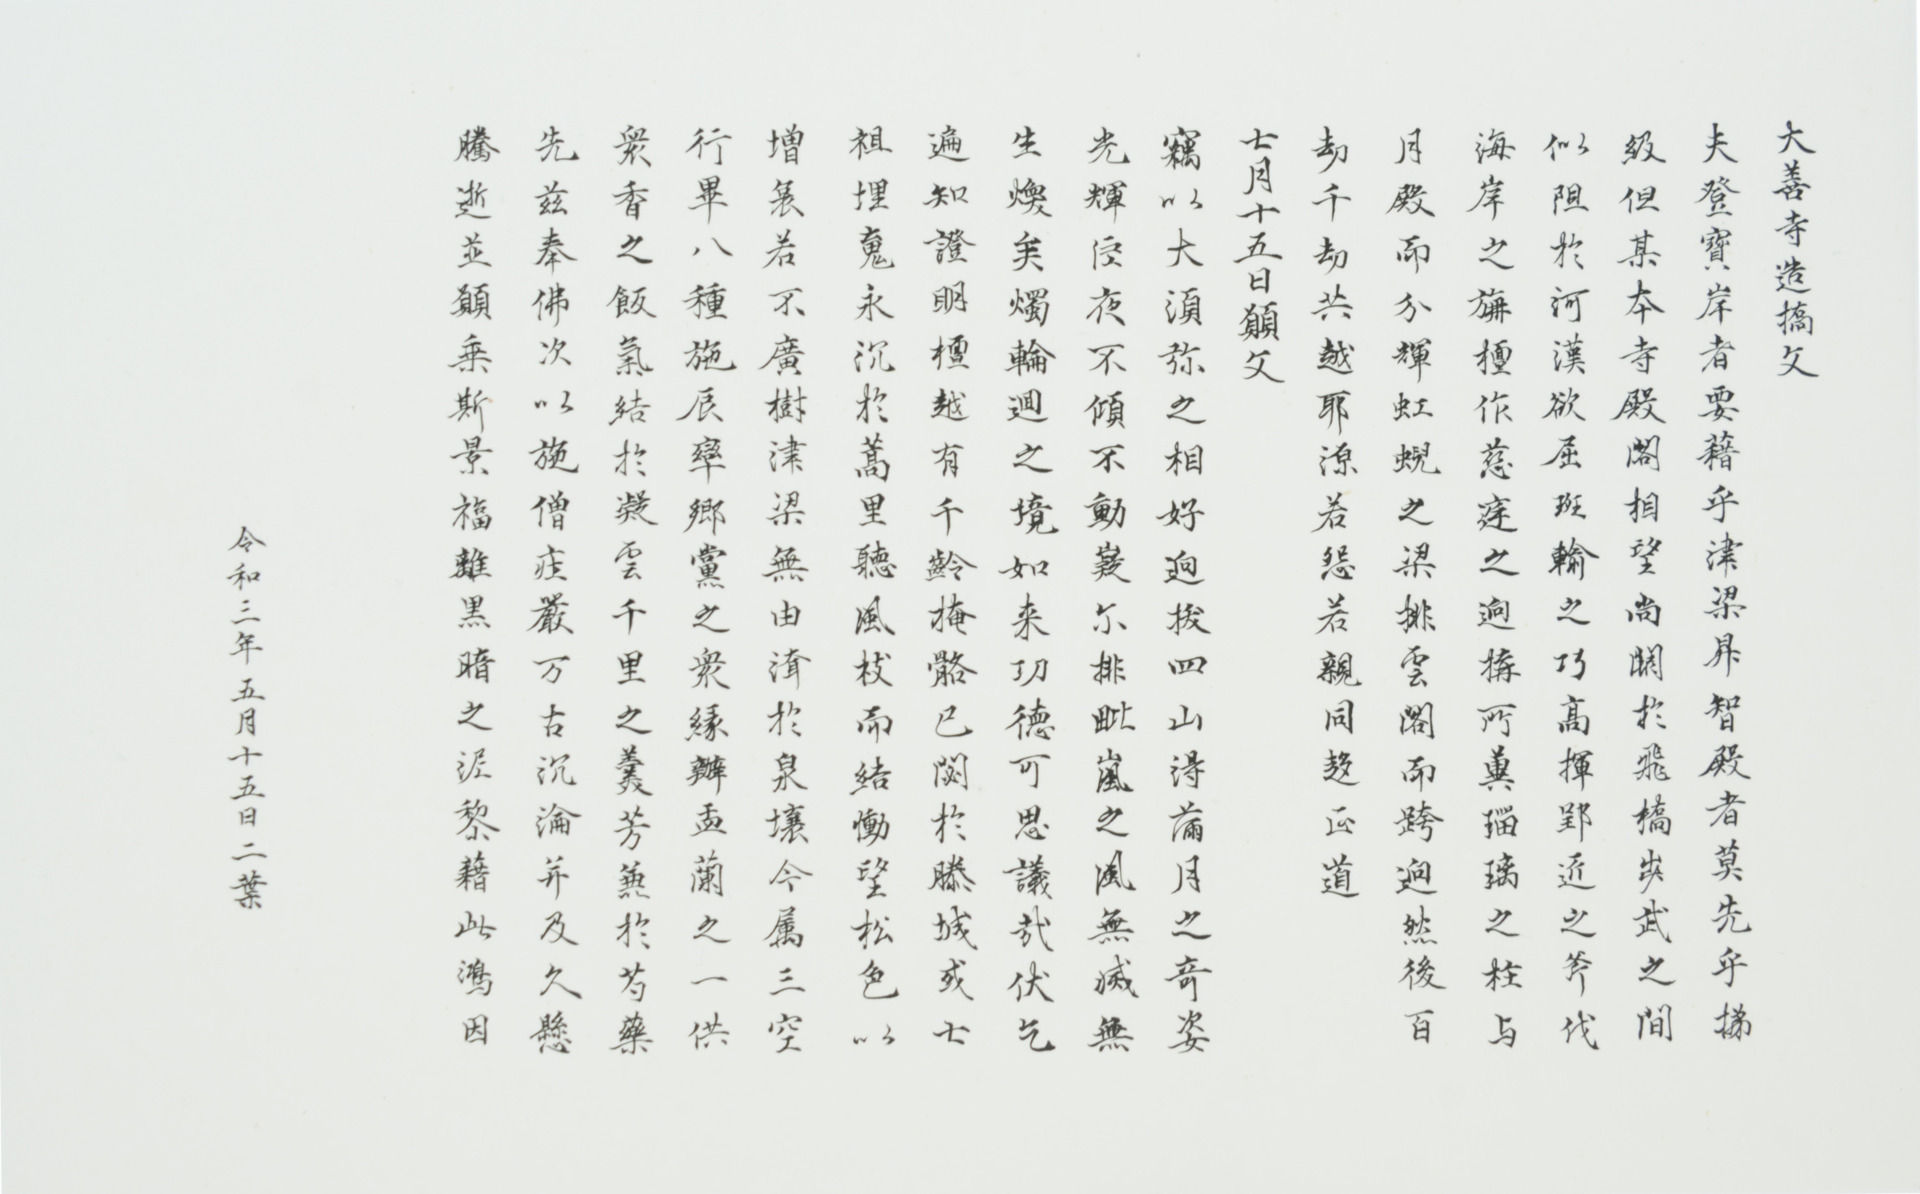 大善寺造橋文
夫登寶岸者要藉乎津梁昇智殿者莫先乎梯
級但某本寺殿閣相望尚闕於飛橋步武之間
似阻於河漢欲屈班輸之巧高揮郢近之斧伐
海岸之旃檀作慈庭之迥構所冀瑙璃之柱与
月殿而分輝虹蜺之梁排雲閣而跨迥然後百
劫千劫共越耶源若怨若親同趍正道
七月十五日願文
竊以大須弥之相好迥拔四山得滿月之奇姿
光輝夜不傾不動嶷尓排毗嵐之風無滅無
生煥矣燭輪迴之境如来功德可思議哉伏乞
遍知證明檀越有千齡掩骼已閟於滕城或七
祖埋䰟永沉於蒿里聽風枝而結慟望松色以
增哀若不廣樹津梁無由濟於泉壤今属三空
行畢八種施辰率鄉黨之衆緣辦盂蘭之一供
衆香之飯氣結於凝雲千里之羹芳無於芍藥
先茲奉佛次以施僧庄嚴万古沉淪并及久懸
騰逝並願乗斯景福離黑暗之泥黎藉此鴻因
令和三年五月十五日二葉